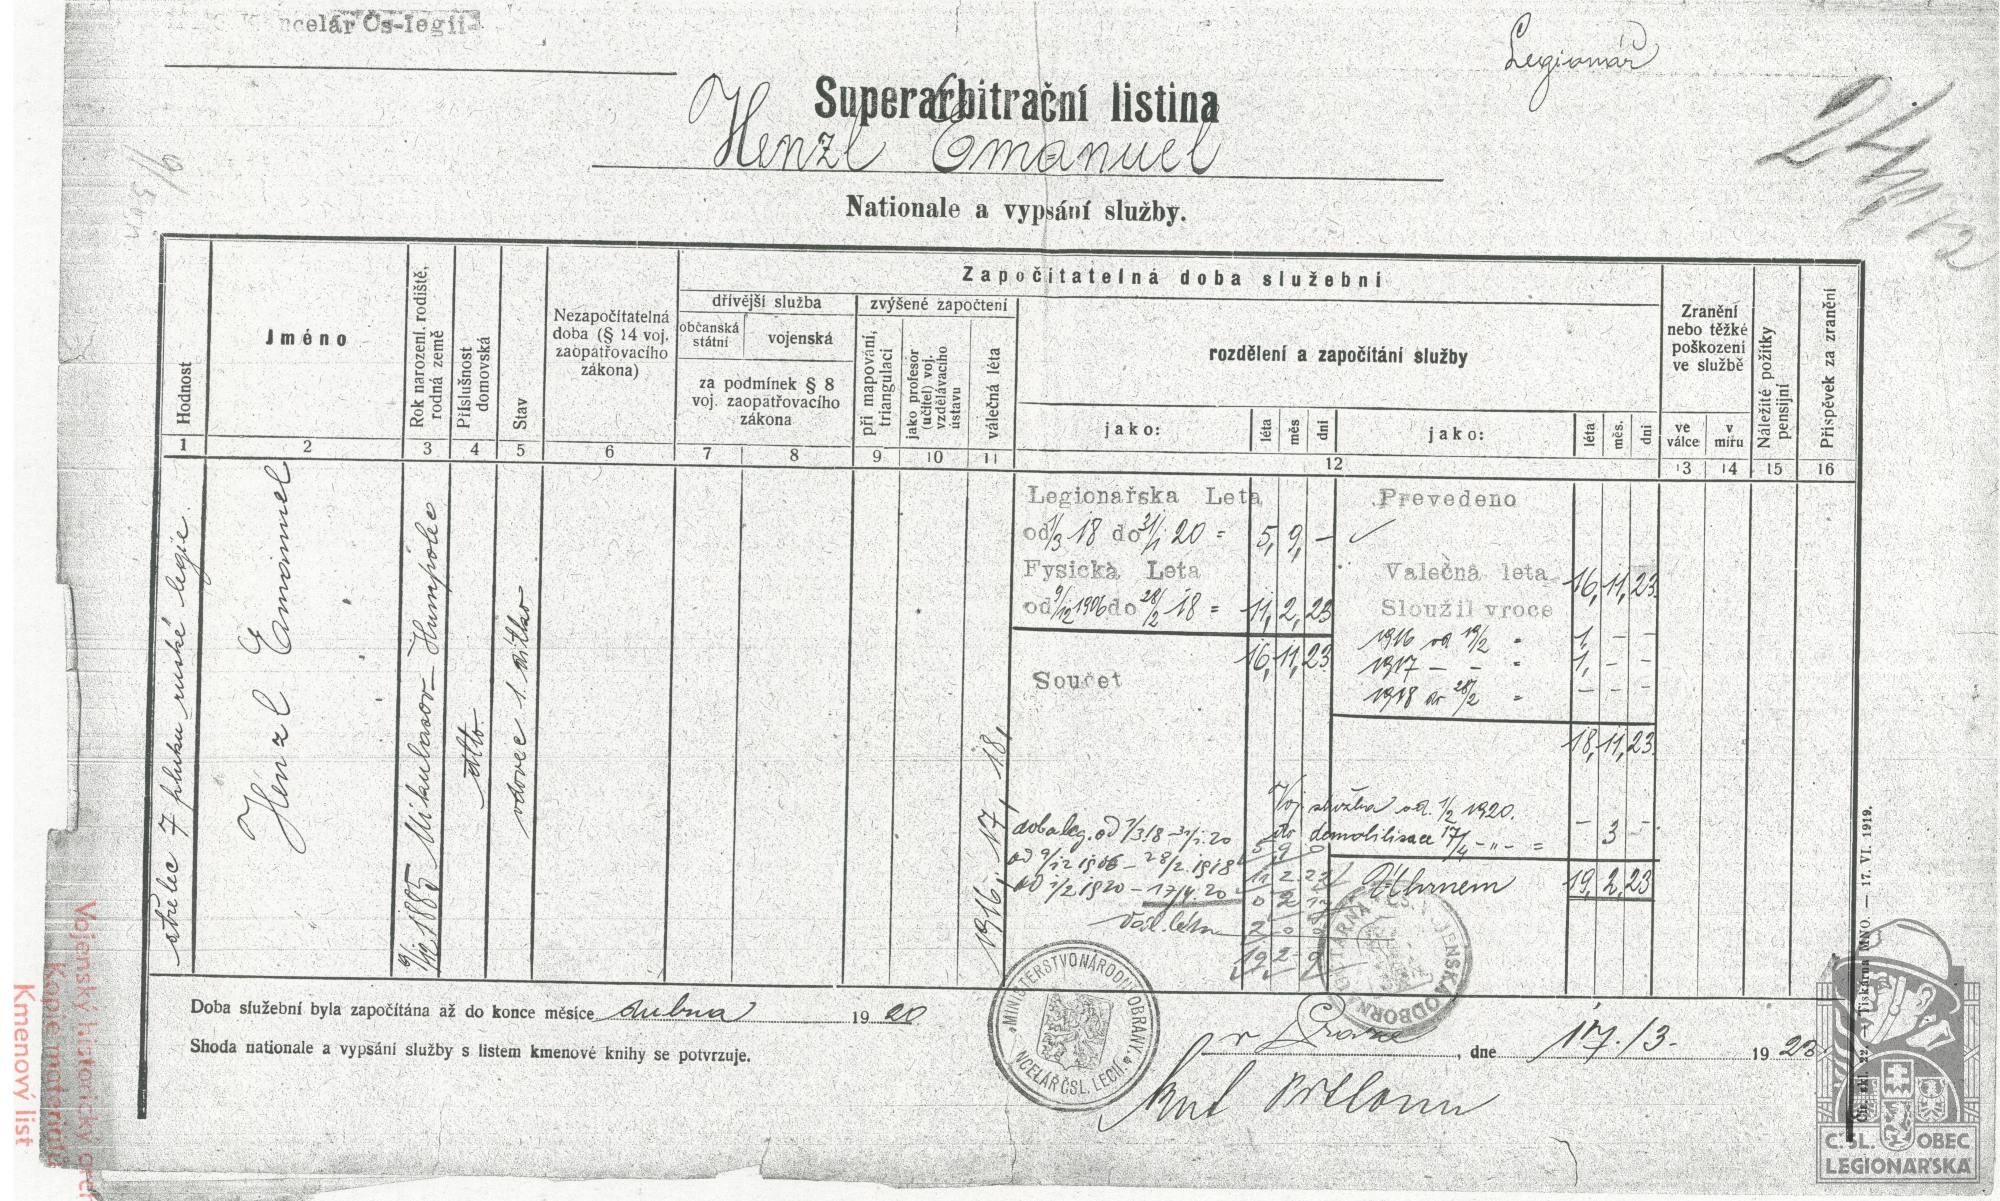 ncelář Čs-legií
Legionář
Superarbitrační listina
Henzl Emanuel
Nationale a vypsání služby.
Hodnost
Jméno
Rok narození, rodiště, rodná země
Příslušnost domovská
Stav
Nezapočítatelná doba (§ 14 voj. zaopatřovacího zákona)
Započítatelná doba služební
dřívější služba
občanská státní
vojenská
za podmínek § 8 voj. zaopatřovacího zákona
zvýšené započtení
při mapování, triangulaci
jako profesor (učitel) voj. vzdělávacího ústavu
válečná léta
rozdělení a započítání služby
jako:
léta
měs
dní
jako:
léta
měs.
dní
Zranění nebo těžké poškození ve službě
ve válce
v míru
Náležité požitky pensijní
Příspěvek za zranění
1 2 3 4 5 6 7 8 9 10 11 12 13 14 15 16
střelec 7 pluku ruské legie.
Henzl Emanuel
9/12 1885 Mikulasov - Humpolec
dtto.
vdovec 1 dítko
1916, 17, 18,
Legionařska Leta
od 1/3 18 do 31/1 20 = 5, 9, –
Fysická Leta
od 9/12 1906 do 28/2 18 = 11, 2, 23
16, 11, 23
Součet
Prevedeno
Valečná leta 16, 11, 23
Sloužil vroce
1916 od 19/2 " 1, – –
1917 – – " 1, – –
1918 do 28/2 " – – –
18, 11, 23
Voj. služba od 1/2 1920.
do demobilisace 17/4 – " – = – 3 –
Úhrnem 19, 2, 23
doba leg. od 1/3 18 – 31/1. 20 5 9 0
od 9/12 1906 – 28/2 1918 11 2 23
od 1/2 1920 – 17/4. 20 0 2 17
vál. léta 2 0 0
19 2
Doba služební byla započítána až do konce měsíce dubna 19 20
Shoda nationale a vypsání služby s listem kmenové knihy se potvrzuje.
MINISTERSTVO NÁRODNÍ OBRANY
NCELÁŘ ČSL. LEGIÍ.
v Praze, dne 17./3. 19 23
TISKÁRNA MNO. — 17. VI. 1919.
Vojenský historický arch
Kopie materiálu
Kmenový list
Č.SL. OBEC
LEGIONÁŘSKÁ